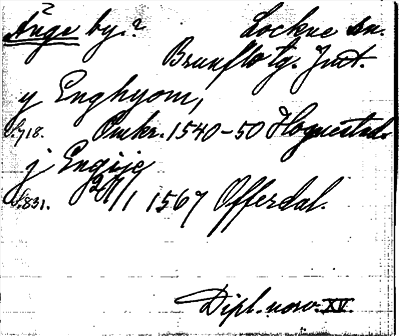 Ånge by? Lockne sn.
Brunflo tg. Jmt.
y Enghyom,
S. 718. Omkr. 1540-50 Hognestad.
j Engije
S. 831. 29/1 1567 Offerdal.
Dipl. norv. XV.